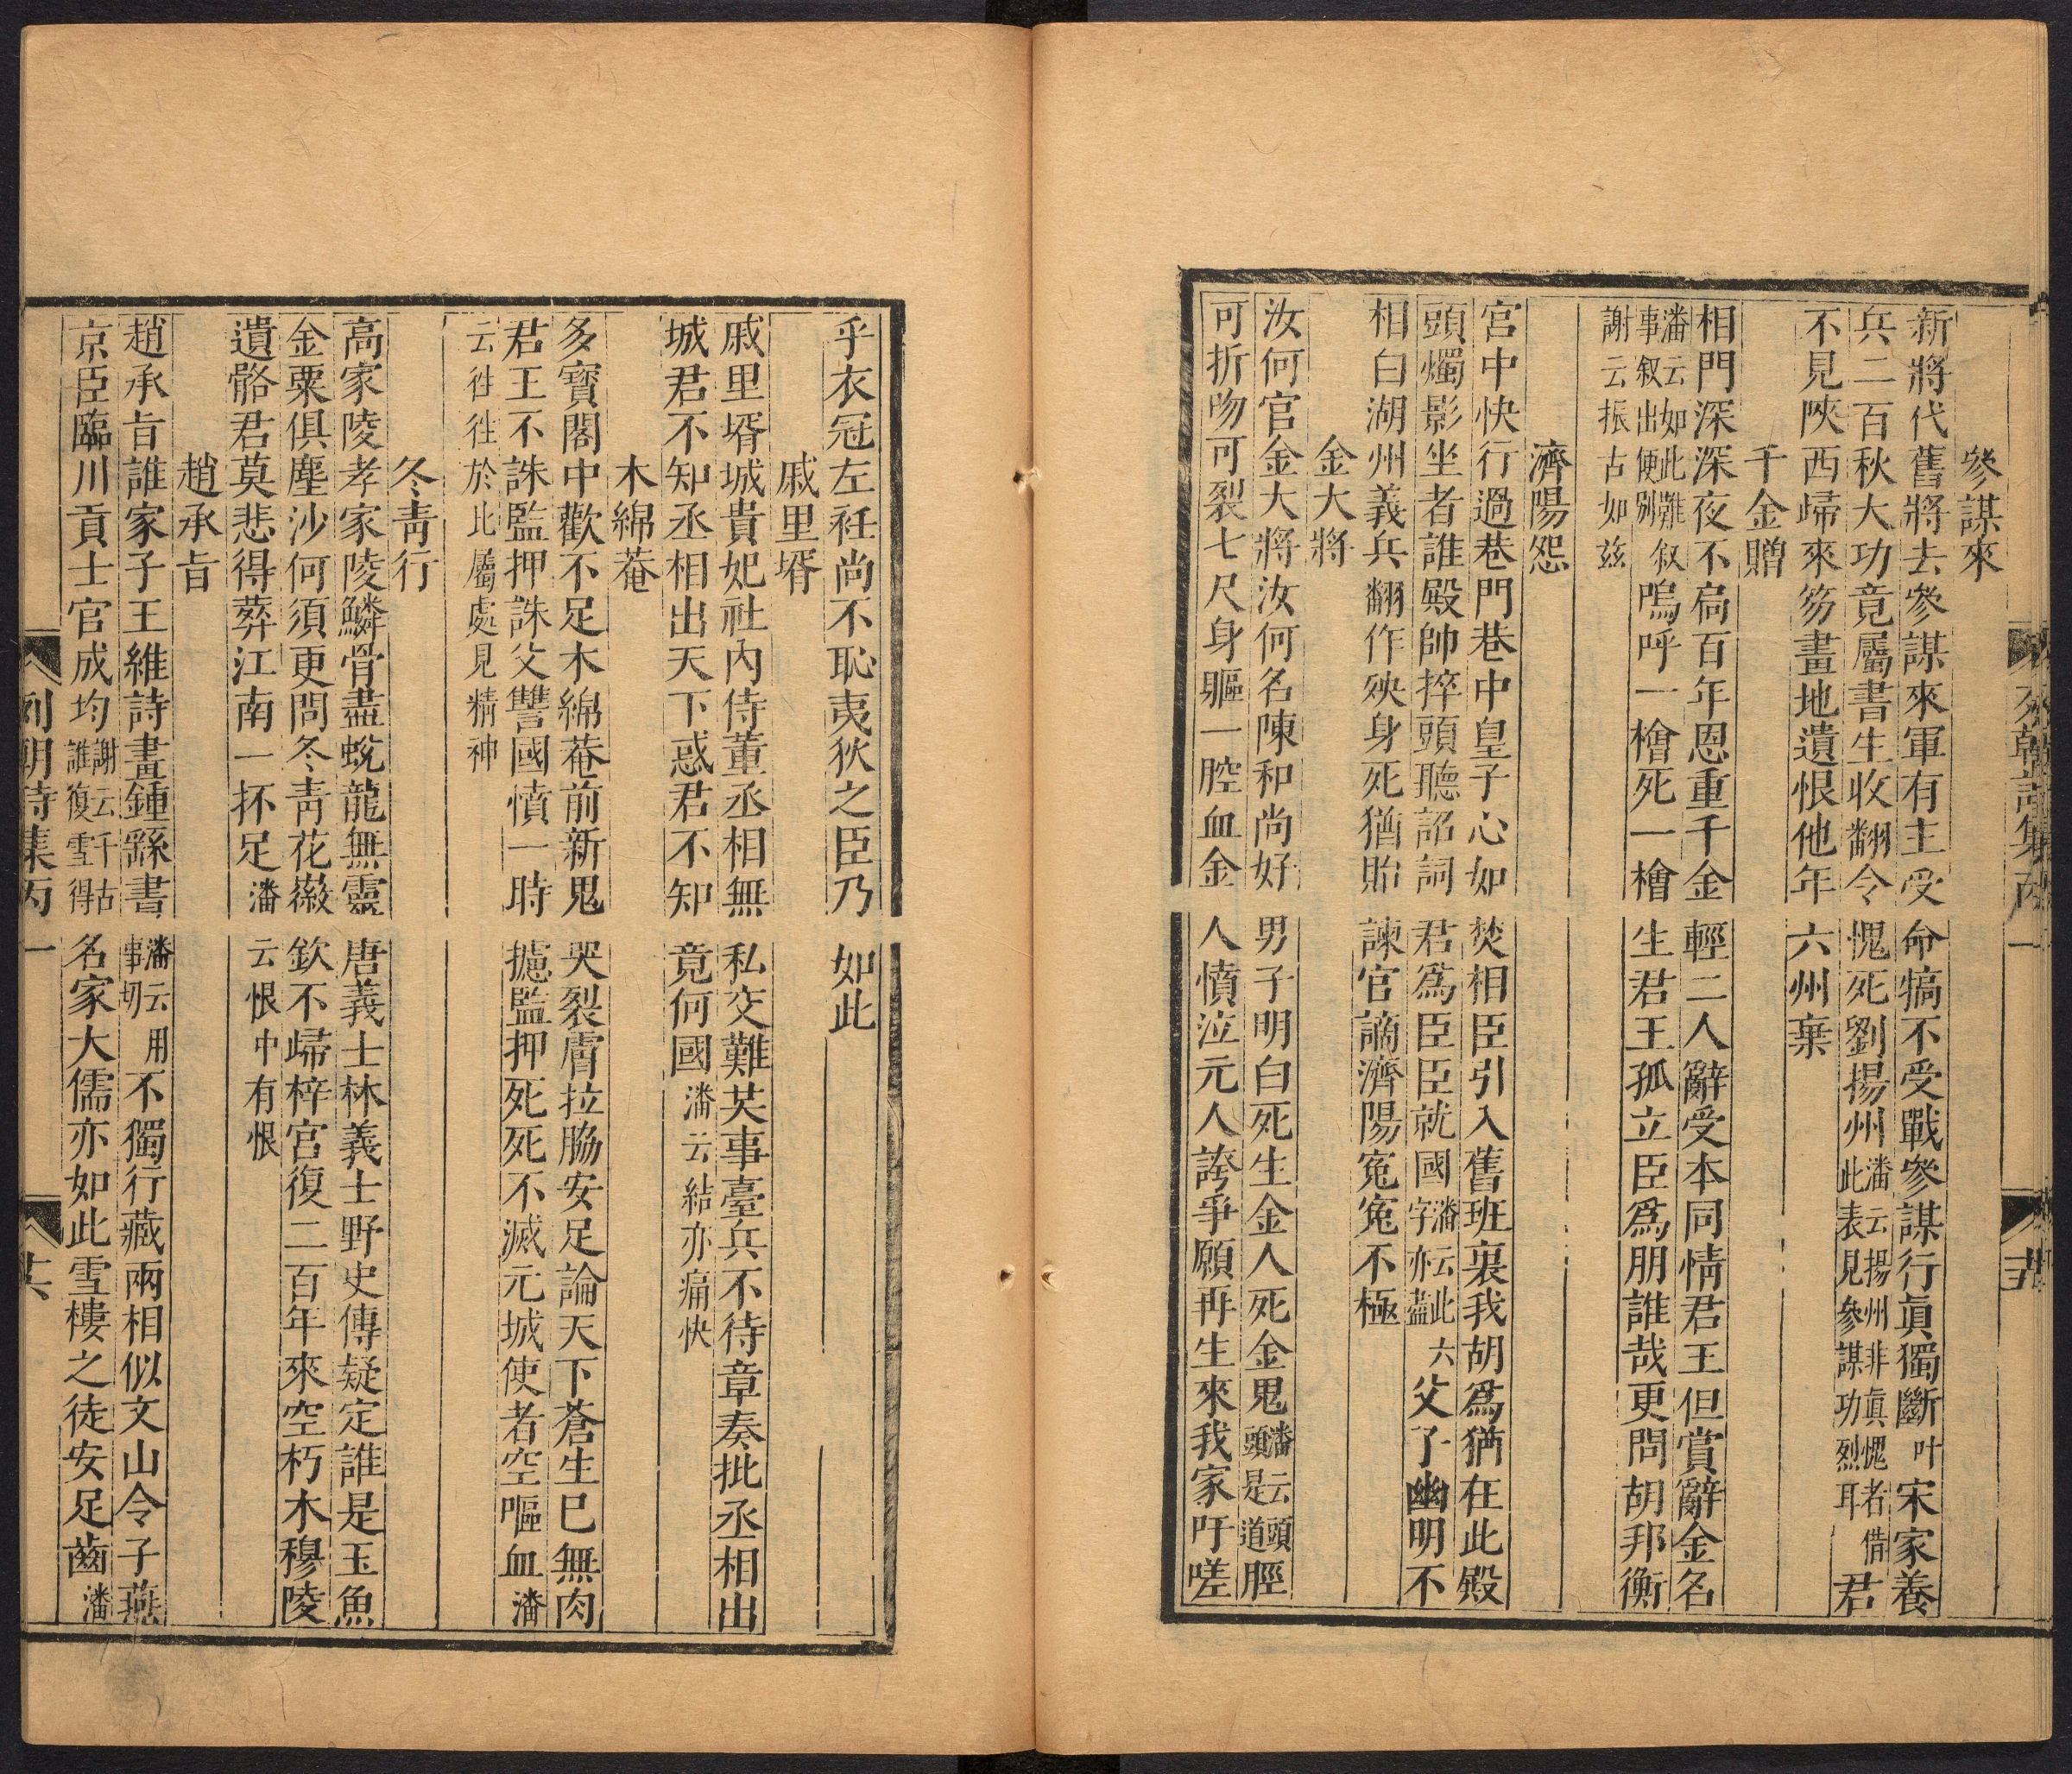 列朝詩集丙一　廿五
參謀來
新將代舊將去參謀來軍有主受命犒不受戰參謀行眞獨斷叶宋家養
兵二百秋大功竟屬書生收翻令愧死劉揚州潘云揚州非眞愧者借此表見參謀功烈耳君
不見陝西歸來笏畫地遺恨他年六州棄
千金贈
相門深深夜不扃百年恩重千金輕二人辭受本同情君王但賞辭金名
潘云如此難叙事叙出便別嗚呼一檜死一檜生君王孤立臣爲朋誰哉更問胡邦衡
謝云振古如茲
濟陽怨
宮中快行過巷門巷中皇子心如焚相臣引入舊班裏我胡爲猶在此殿
頭燭影坐者誰殿帥捽頭聽詔詞君爲臣臣就國潘云此六字亦藎父了幽明不
相白湖州義兵翻作殃身死猶貽諫官謫濟陽寃寃不極
金大將
汝何官金大將汝何名陳和尚好男子明白死生金人死金鬼潘云頭頭是道脛
可折吻可裂七尺身軀一腔血金人憤泣元人誇爭願再生來我家吁嗟
乎衣冠左衽尚不恥夷狄之臣乃如此
戚里壻
戚里壻城貴妃社內侍董丞相無私交難共事臺兵不待章奏批丞相出
城君不知丞相出天下惑君不知竟何國潘云結亦痛快
木綿菴
多寳閣中歡不足木綿菴前新鬼哭裂膚拉脇安足論天下蒼生已無肉
君王不誅監押誅父讐國憤一時攄監押死死不滅元城使者空嘔血潘
云徃徃於此屬處見精神
冬靑行
高家陵孝家陵鱗骨盡蛻龍無靈唐義士林義士野史傳疑定誰是玉魚
金粟俱塵沙何須更問冬靑花徽欽不歸梓宮復二百年來空朽木穆陵
遺骼君莫悲得葬江南一抔足潘云恨中有恨
趙承旨
趙承旨誰家子王維詩畫鍾繇書潘云用事切不獨行藏兩相似文山令子燕
京臣臨川貢士官成均謝云千古誰復雪得名家大儒亦如此雪樓之徒安足齒潘
列朝詩集丙一　廿六